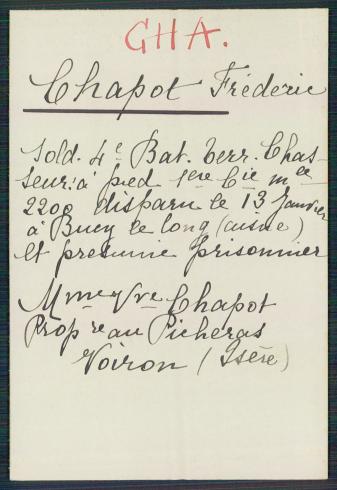 GHA.
Chapot Fréderic
Sold. 4e Bat. Terr. Chas-
seur. à pied 1ere Cie mle
2200 disparu le 13 Janvier
à Bucy le long (aisne)
et presumé prisonnier
Mme Vve Chapot
Propre au Picheras
Voiron (Isère)